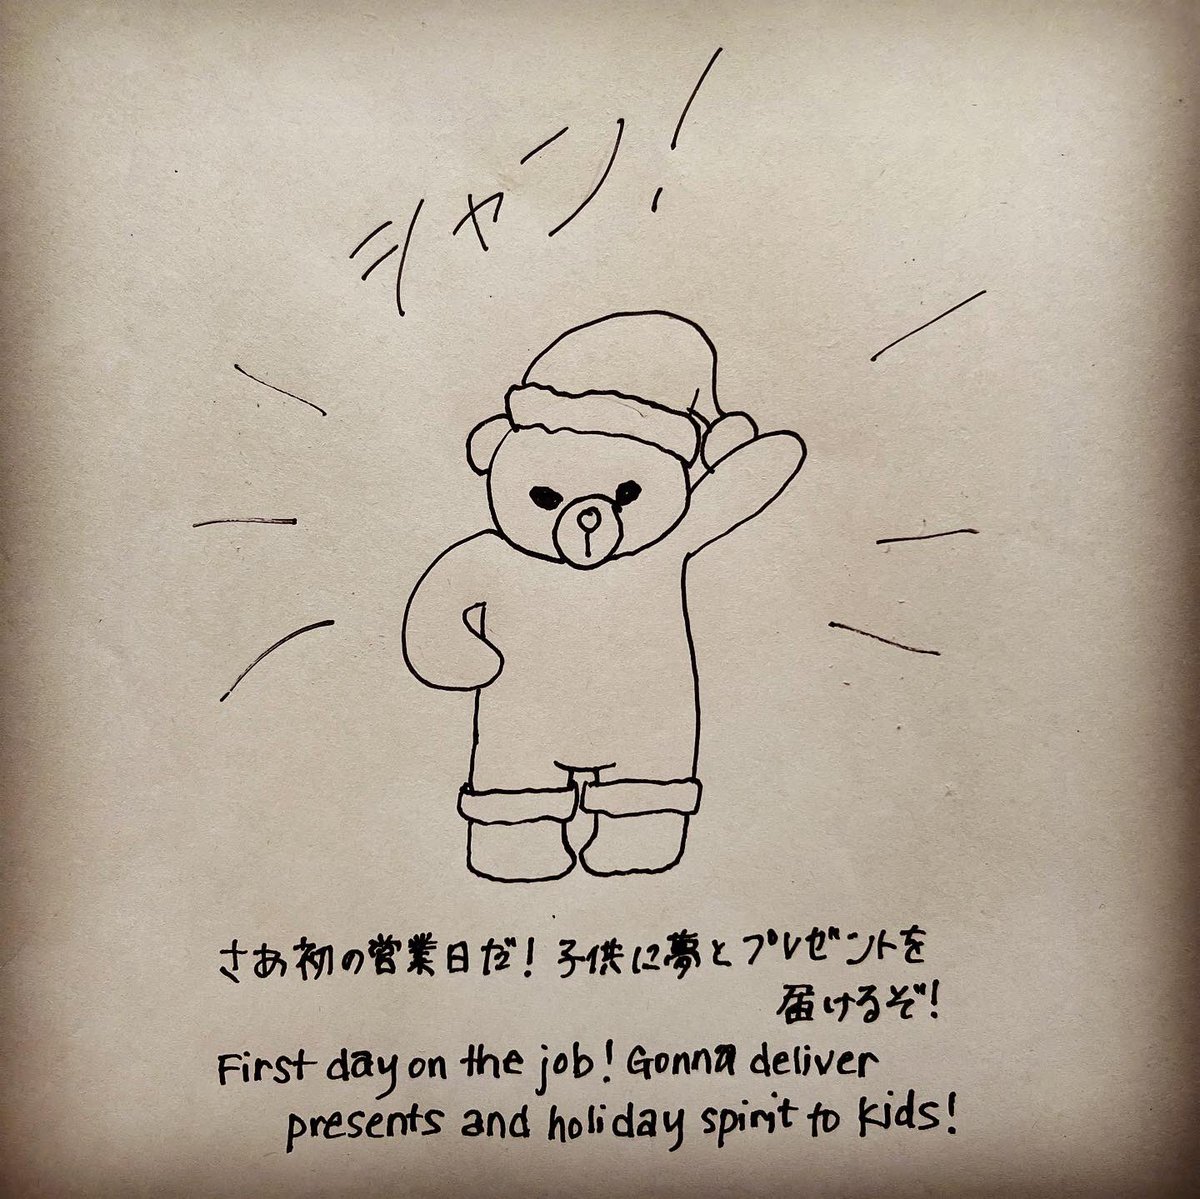 シャン!
さあ初の営業日だ!子供に夢とプレゼントを
届けるぞ!
First day on the job! Gonna deliver
presents and holiday spirit to kids!